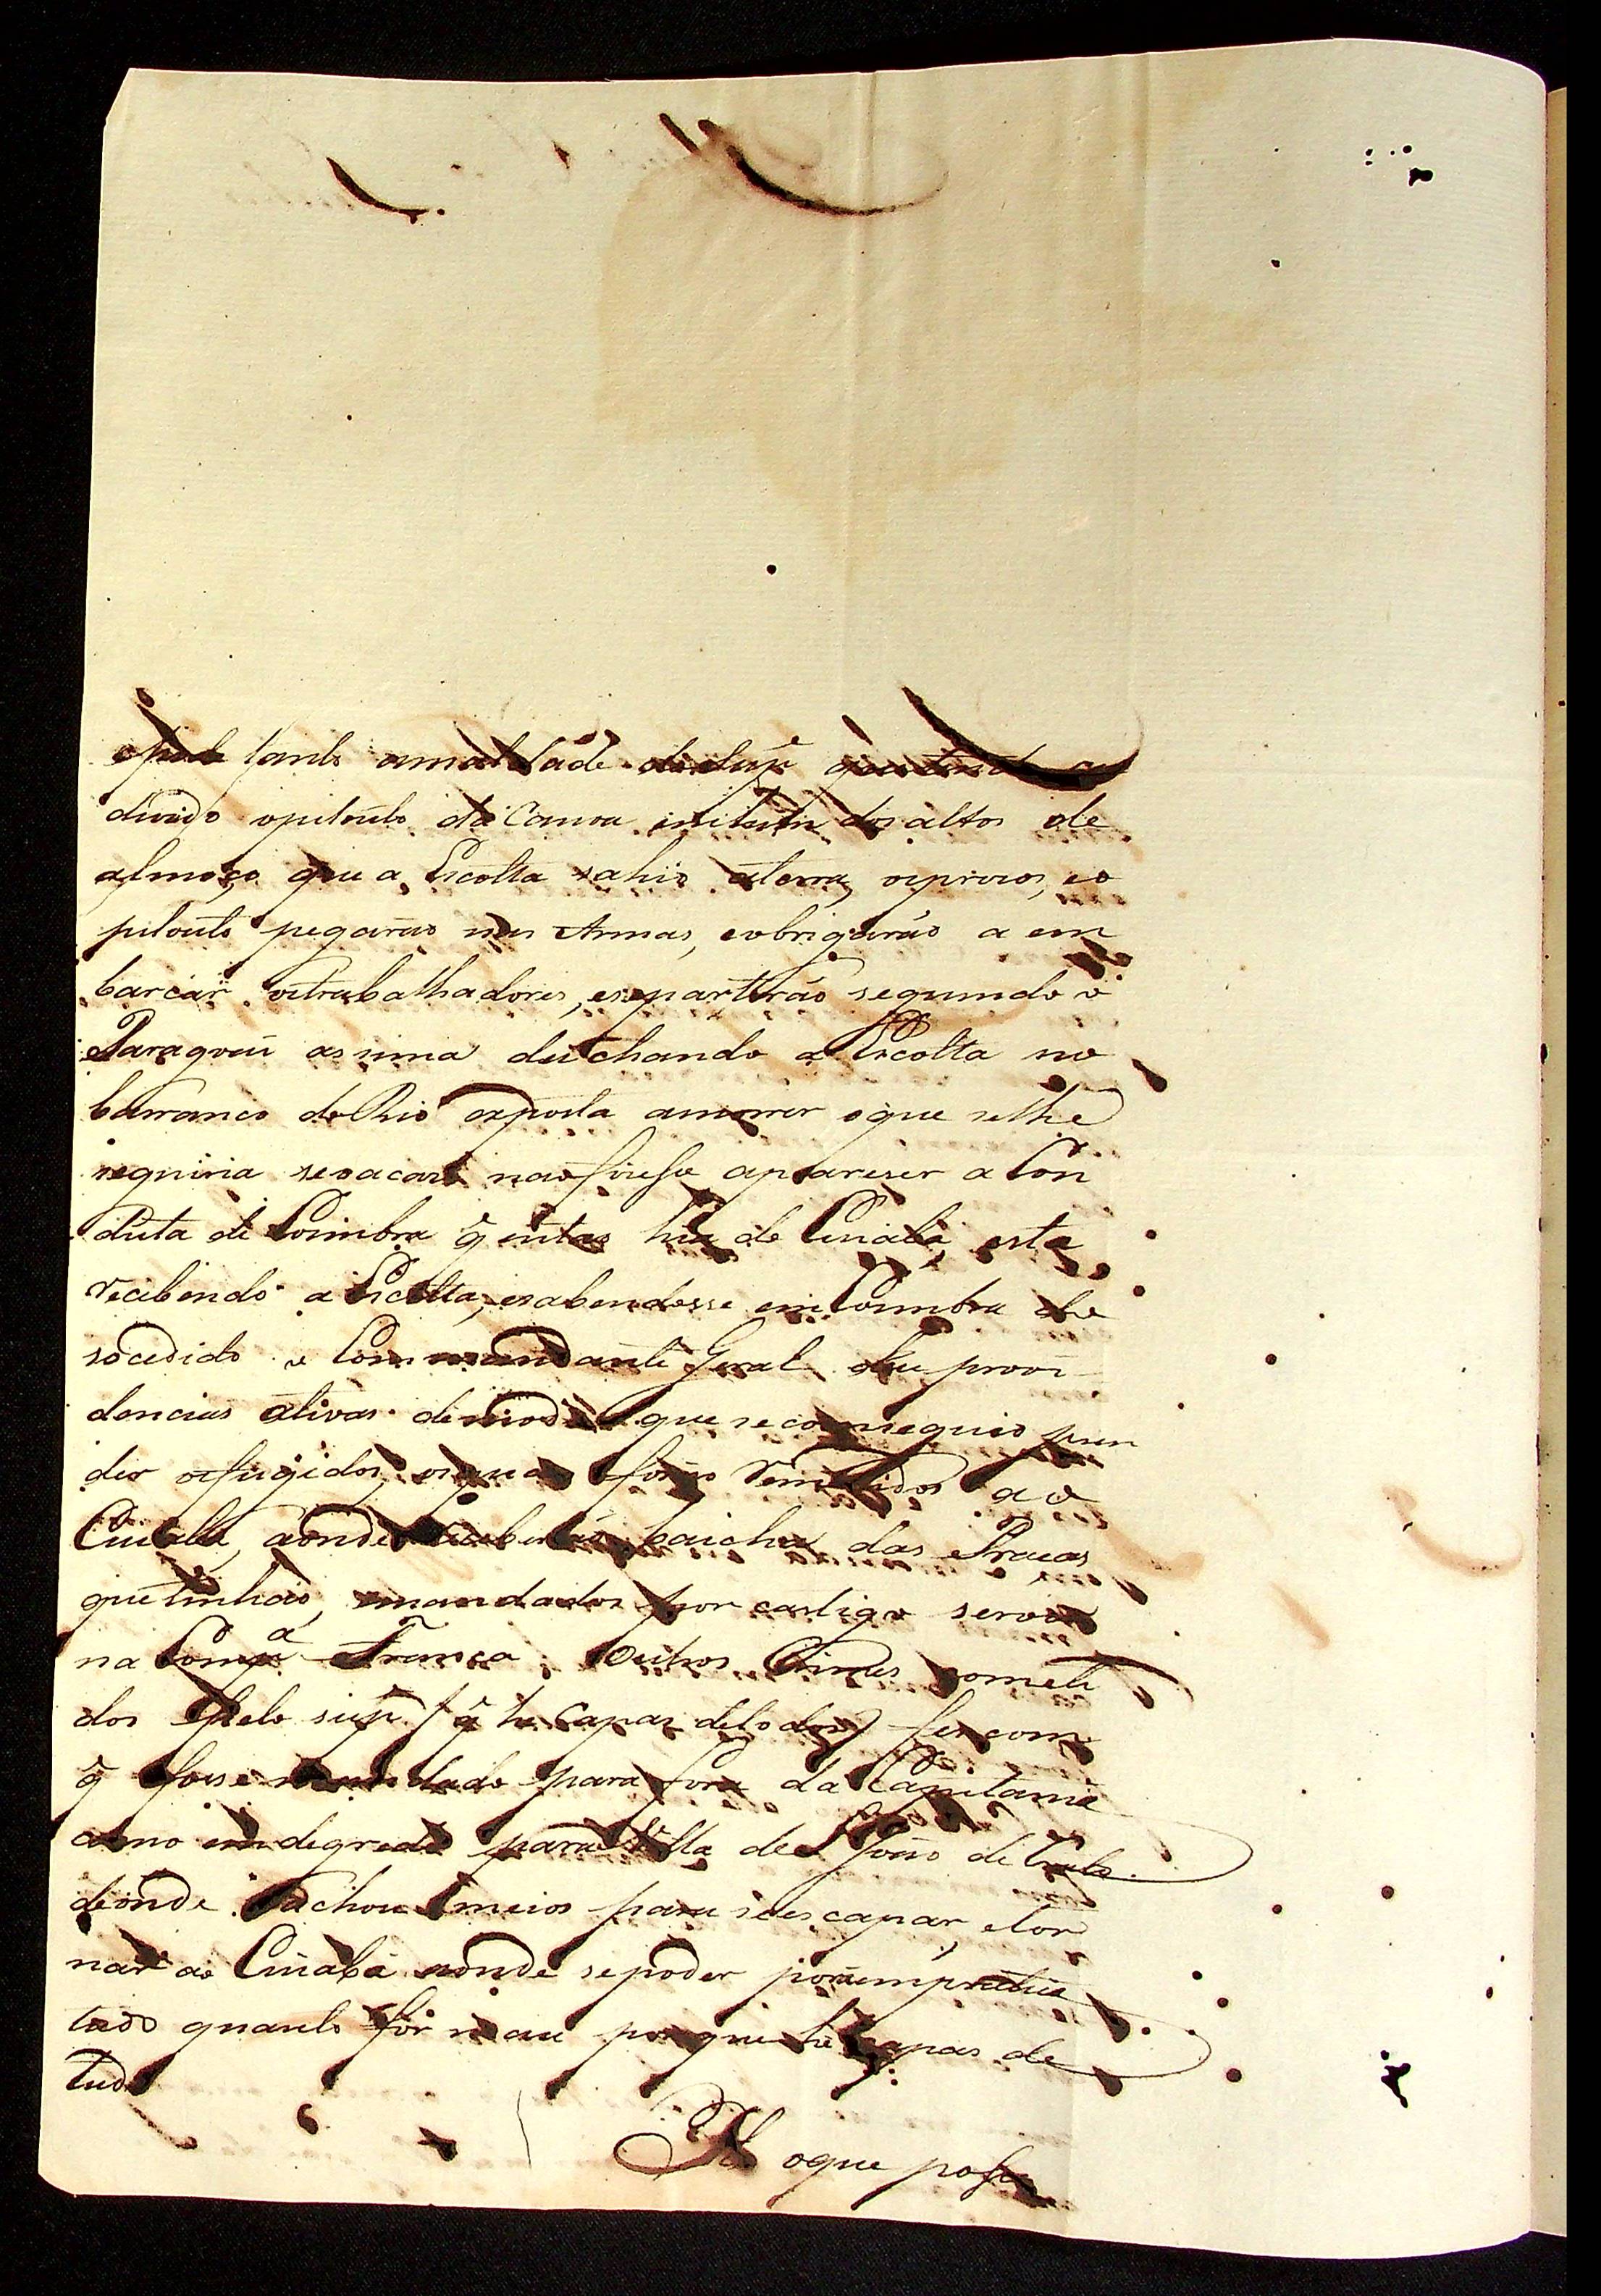 epode tanto amaldade do sup.e que tendo se
duzido opilouto da Canoa em hum dos altos de
almoço, que a Escolta sahio aterra, ospresos, eo
pilouto pegaraõ nas Armas, eobrigaraõ a em
barcar ostrabalhadores, esepartiraõ seguindo o
Paraguai assima deichando a Escolta no
barranco do Rio exposta amorrer oque selhe
siguiria seoacaso naõ fizesse apareser a Con
duta de Coimbra q̃ entaõ hia de Cuiabá, esta
recibendo a Escolta, esabendosse em Coimbra do
socedido o Commandante Geral deu provi
dencias ativas de modo que seconseguio pren
der osfugidos, osquaes foraõ remetidos ao
Cuiabá, aonde receberaõ baicha das Pracas
quetinhaõ, emandados por castigo servir
na Comp.a Franca. Outros Crimes cometi
dos pelo sup.e (q̃ he Capas detodos) fes com
q̃ fosse mandado para fora da Capitania
como em degredo para Villa de S. Joaõ de
deonde achou meios para se escapar, etor
nar ao Cuiabá aonde sepoder porá em pratica
tudo quanto for mau porque he Capas de
tudo
He oque posso